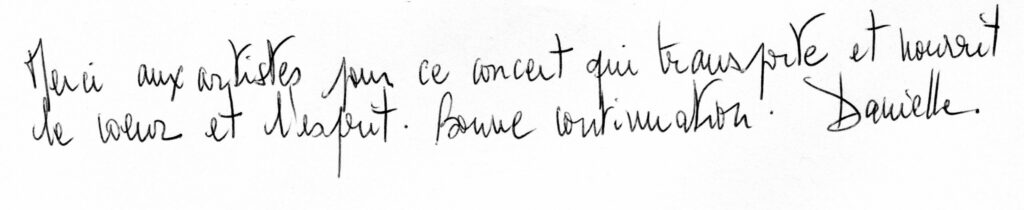 Merci aux artistes pour ce concert qui transporte et nourrit
le coeur et l'esprit. Bonne continuation. Danielle.